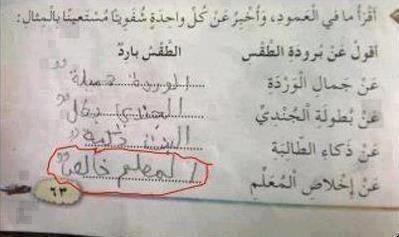 أَقْرَأُ ما في الْعَمودِ، وَأُخْبِرُ عَنْ كُلِّ واحِدَةٍ شَفَوِيًّا مُسْتَعينًا بِالْمِثالِ:
أَقولُ عَنْ بُرودَةِ الطَّقْسِ الطَّقْسُ بارِدٌ
عَنْ جَمالِ الْوَرْدَةِ الوردة جميلة
عَنْ بُطولَةِ الْجُنْدِيِّ الجندي بطل
عَنْ ذَكاءِ الطّالِبَةِ البنت ذكية
عَنْ إِخْلاصِ الْمُعَلِّمِ المعلم خالص
٦٣